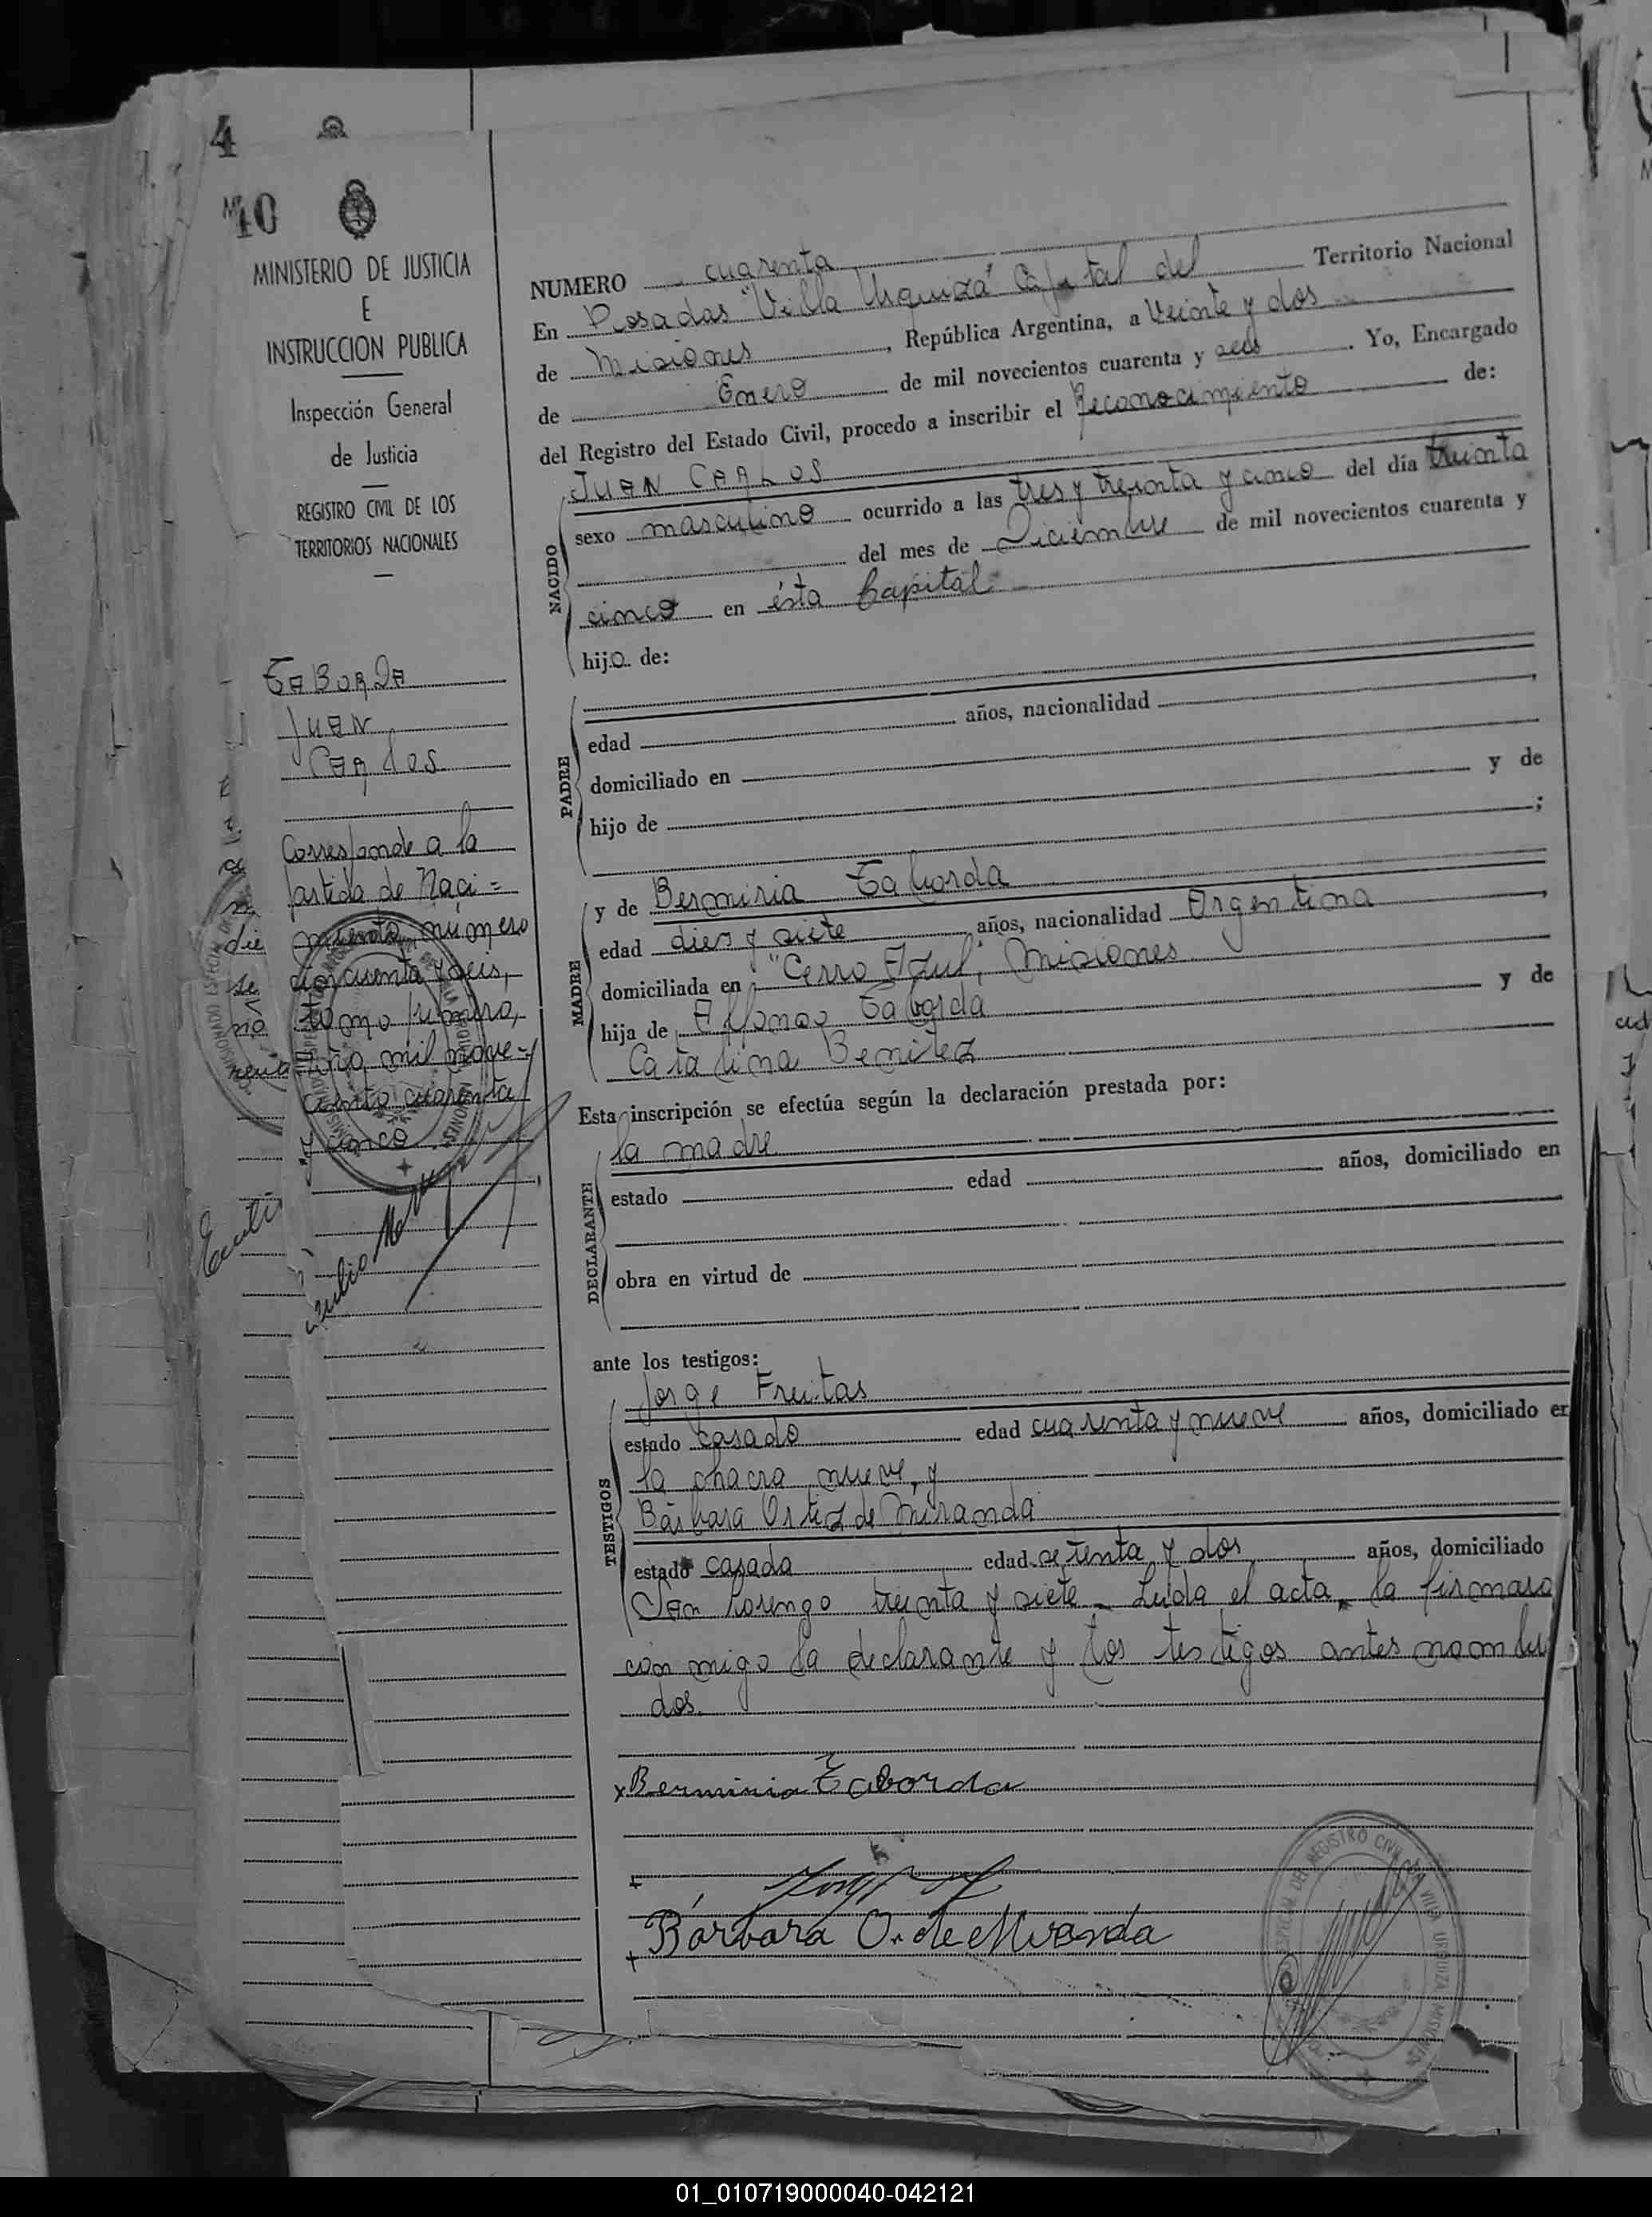 4
Nº 40
MINISTERIO DE JUSTICIA
E
INSTRUCCION PUBLICA
Inspección General
de Justicia
REGISTRO CIVIL DE LOS
TERRITORIOS NACIONALES
TABORDA
JUAN
CARlos
Corresponde a la
partida de Naci=
miento número
cincuenta y seis,
tomo primero,
año mil nove-
ciento cuarenta
y cinco
NUMERO cuarenta
En Posadas "Villa Urquiza" Capital del Territorio Nacional
de Misiones, República Argentina, a Veinte y dos
de Enero de mil novecientos cuarenta y seis. Yo, Encargado
del Registro del Estado Civil, procedo a inscribir el Reconocimiento de:
JUAN CARLOS
sexo masculino ocurrido a las tres y treinta y cinco del día treinta
del mes de Diciembre de mil novecientos cuarenta y
cinco en ésta Capital
hijo de:
NACIDO
edad años, nacionalidad ,
domiciliado en
hijo de y de
;
PADRE
y de Berminia Taborda
edad dies y siete años, nacionalidad Argentina,
domiciliada en "Cerro Azul", Misiones
hija de Alfonso Taborda y de
Catalina Benitez
MADRE
Esta inscripción se efectúa según la declaración prestada por:
la madre
estado edad años, domiciliado en
obra en virtud de
DECLARANTE
ante los testigos:
Jorge Freitas
estado casado edad cuarenta y nueve años, domiciliado en
la chacra nueve, y
Bárbara Ortiz de Miranda
estado casada edad setenta y dos años, domiciliado
San Lorenzo treinta y siete. Leida el acta, la firmaro
con migo la declarante y los testigos antes nombr
dos.
TESTIGOS
x Berminia Taborda
Bárbara O. de Miranda
01_010719000040-042121